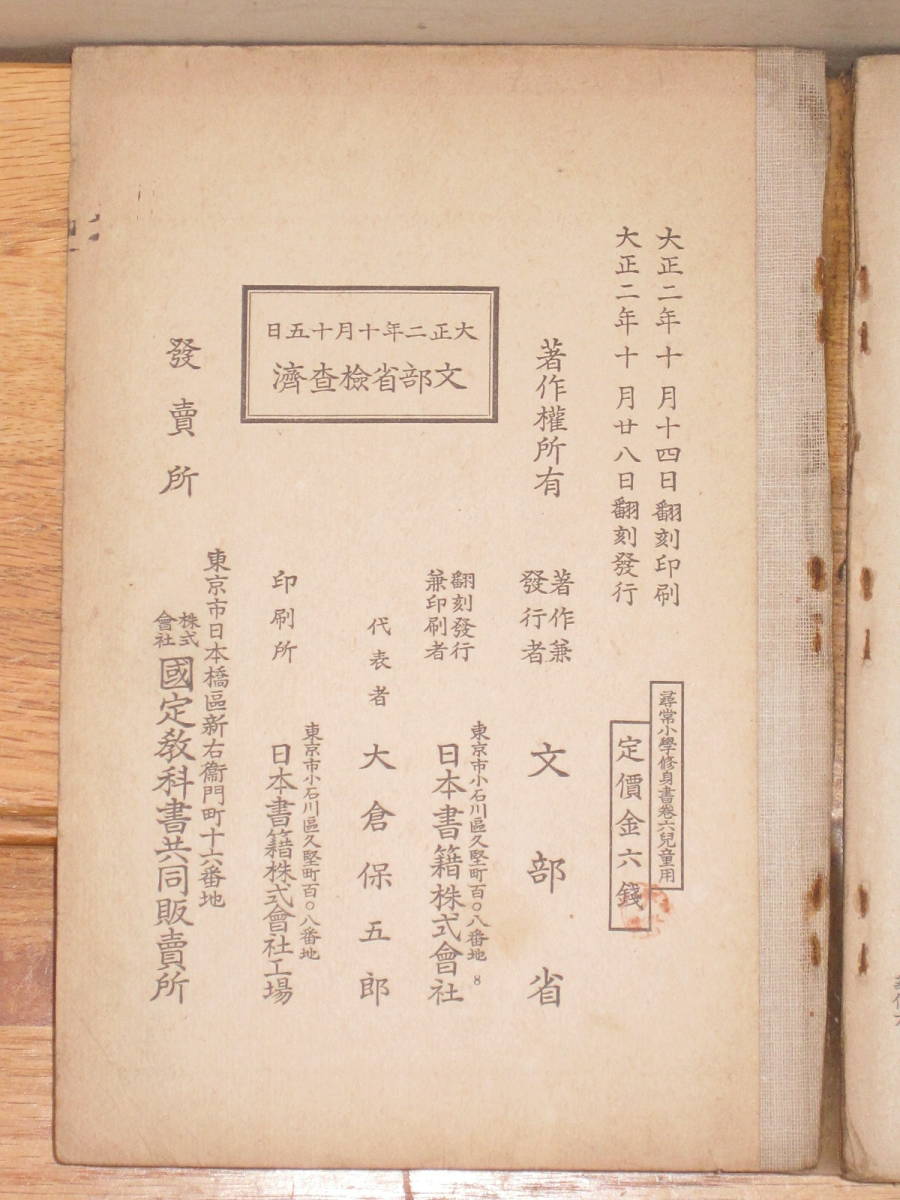 大正二年十月十四日翻刻印刷
大正二年十月廿八日翻刻發行
尋常小學修身書卷六兒童用
定價金六錢
著作權所有
著作兼
發行者
文部省
大正二年十月十五日
文部省檢查濟
翻刻發行
兼印刷者
東京市小石川區久堅町百〇八番地
8
日本書籍株式會社
代表者
大倉保五郎
印刷所
東京市小石川區久堅町百〇八番地
日本書籍株式會社工場
發賣所
東京市日本橋區新右衞門町十六番地
株式
會社
國定敎科書共同販賣所